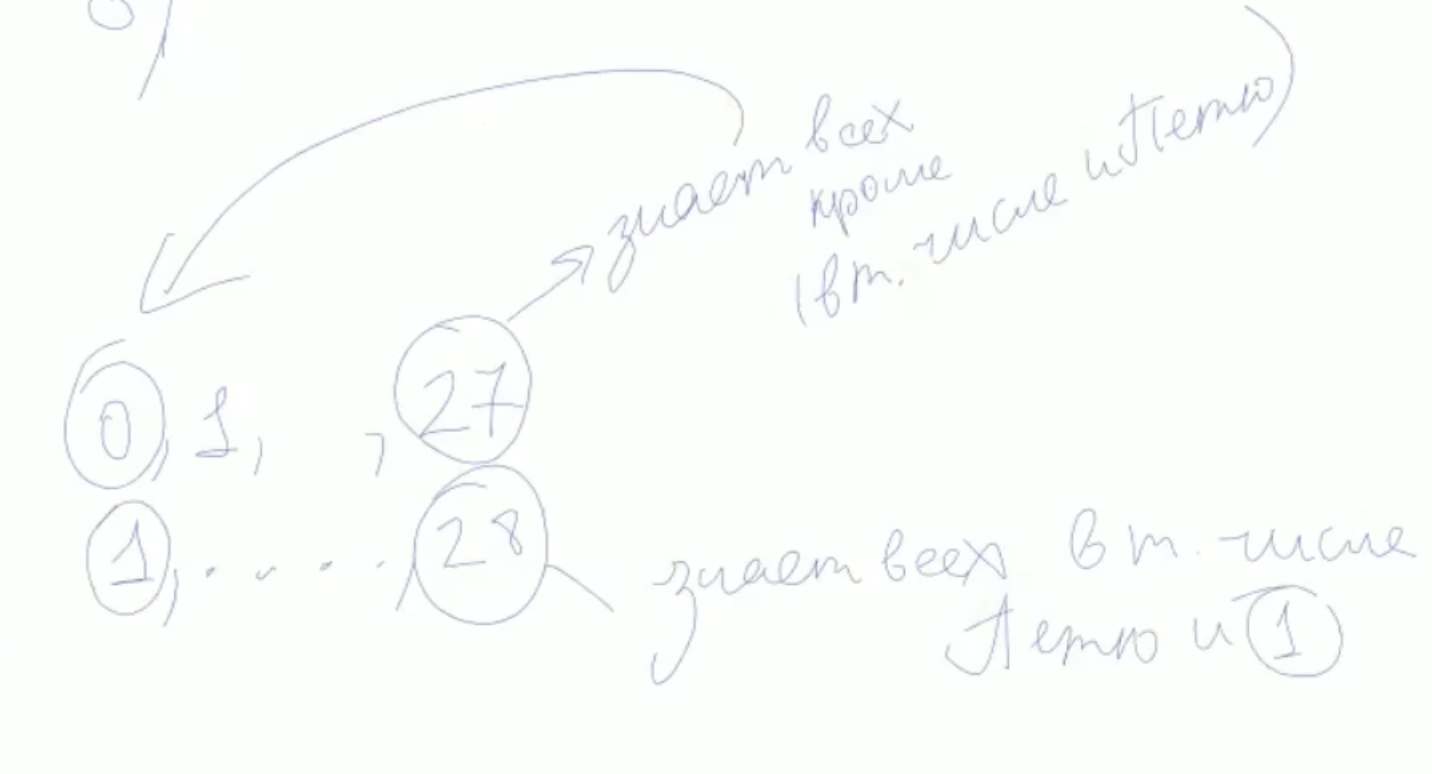 б)
знает всех
кроме
(в т. числе и Петю)
0, 1, , 27
1, . . . . , 28
знает всех в т. числе
Петю и 1